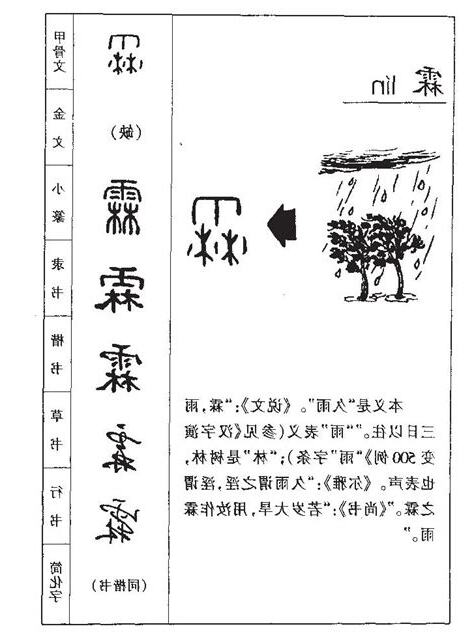 霖 lín
本义是“久雨”。《说文》:“霖,雨
三日以往。”“雨”表义(参见《汉字演
变 500 例》“雨”字条);“林”是树林,
也表声。《尔雅》:“久雨谓之淫,淫谓
之霖。”《尚书》:“若岁大旱,用汝作霖
雨。”
甲骨文 霖
金文 (缺)
小篆 霖
隶书 霖
楷书 霖
草书 霖
行书 霖
简化字 (同楷书)